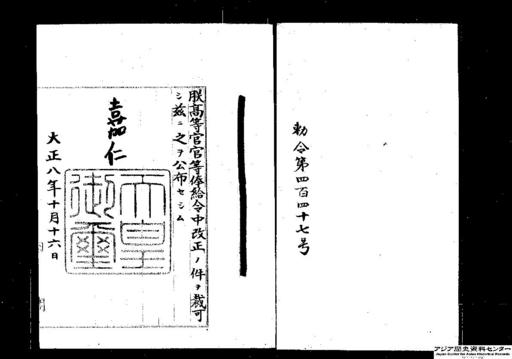 勅令第四百四十七号
朕高等官官等俸給令中改正ノ件ヲ裁可
シ茲ニ之ヲ公布セシム
嘉仁
天皇御璽
大正八年十月十六日
アジア歴史資料センター
Japan Center for Asian Historical Records